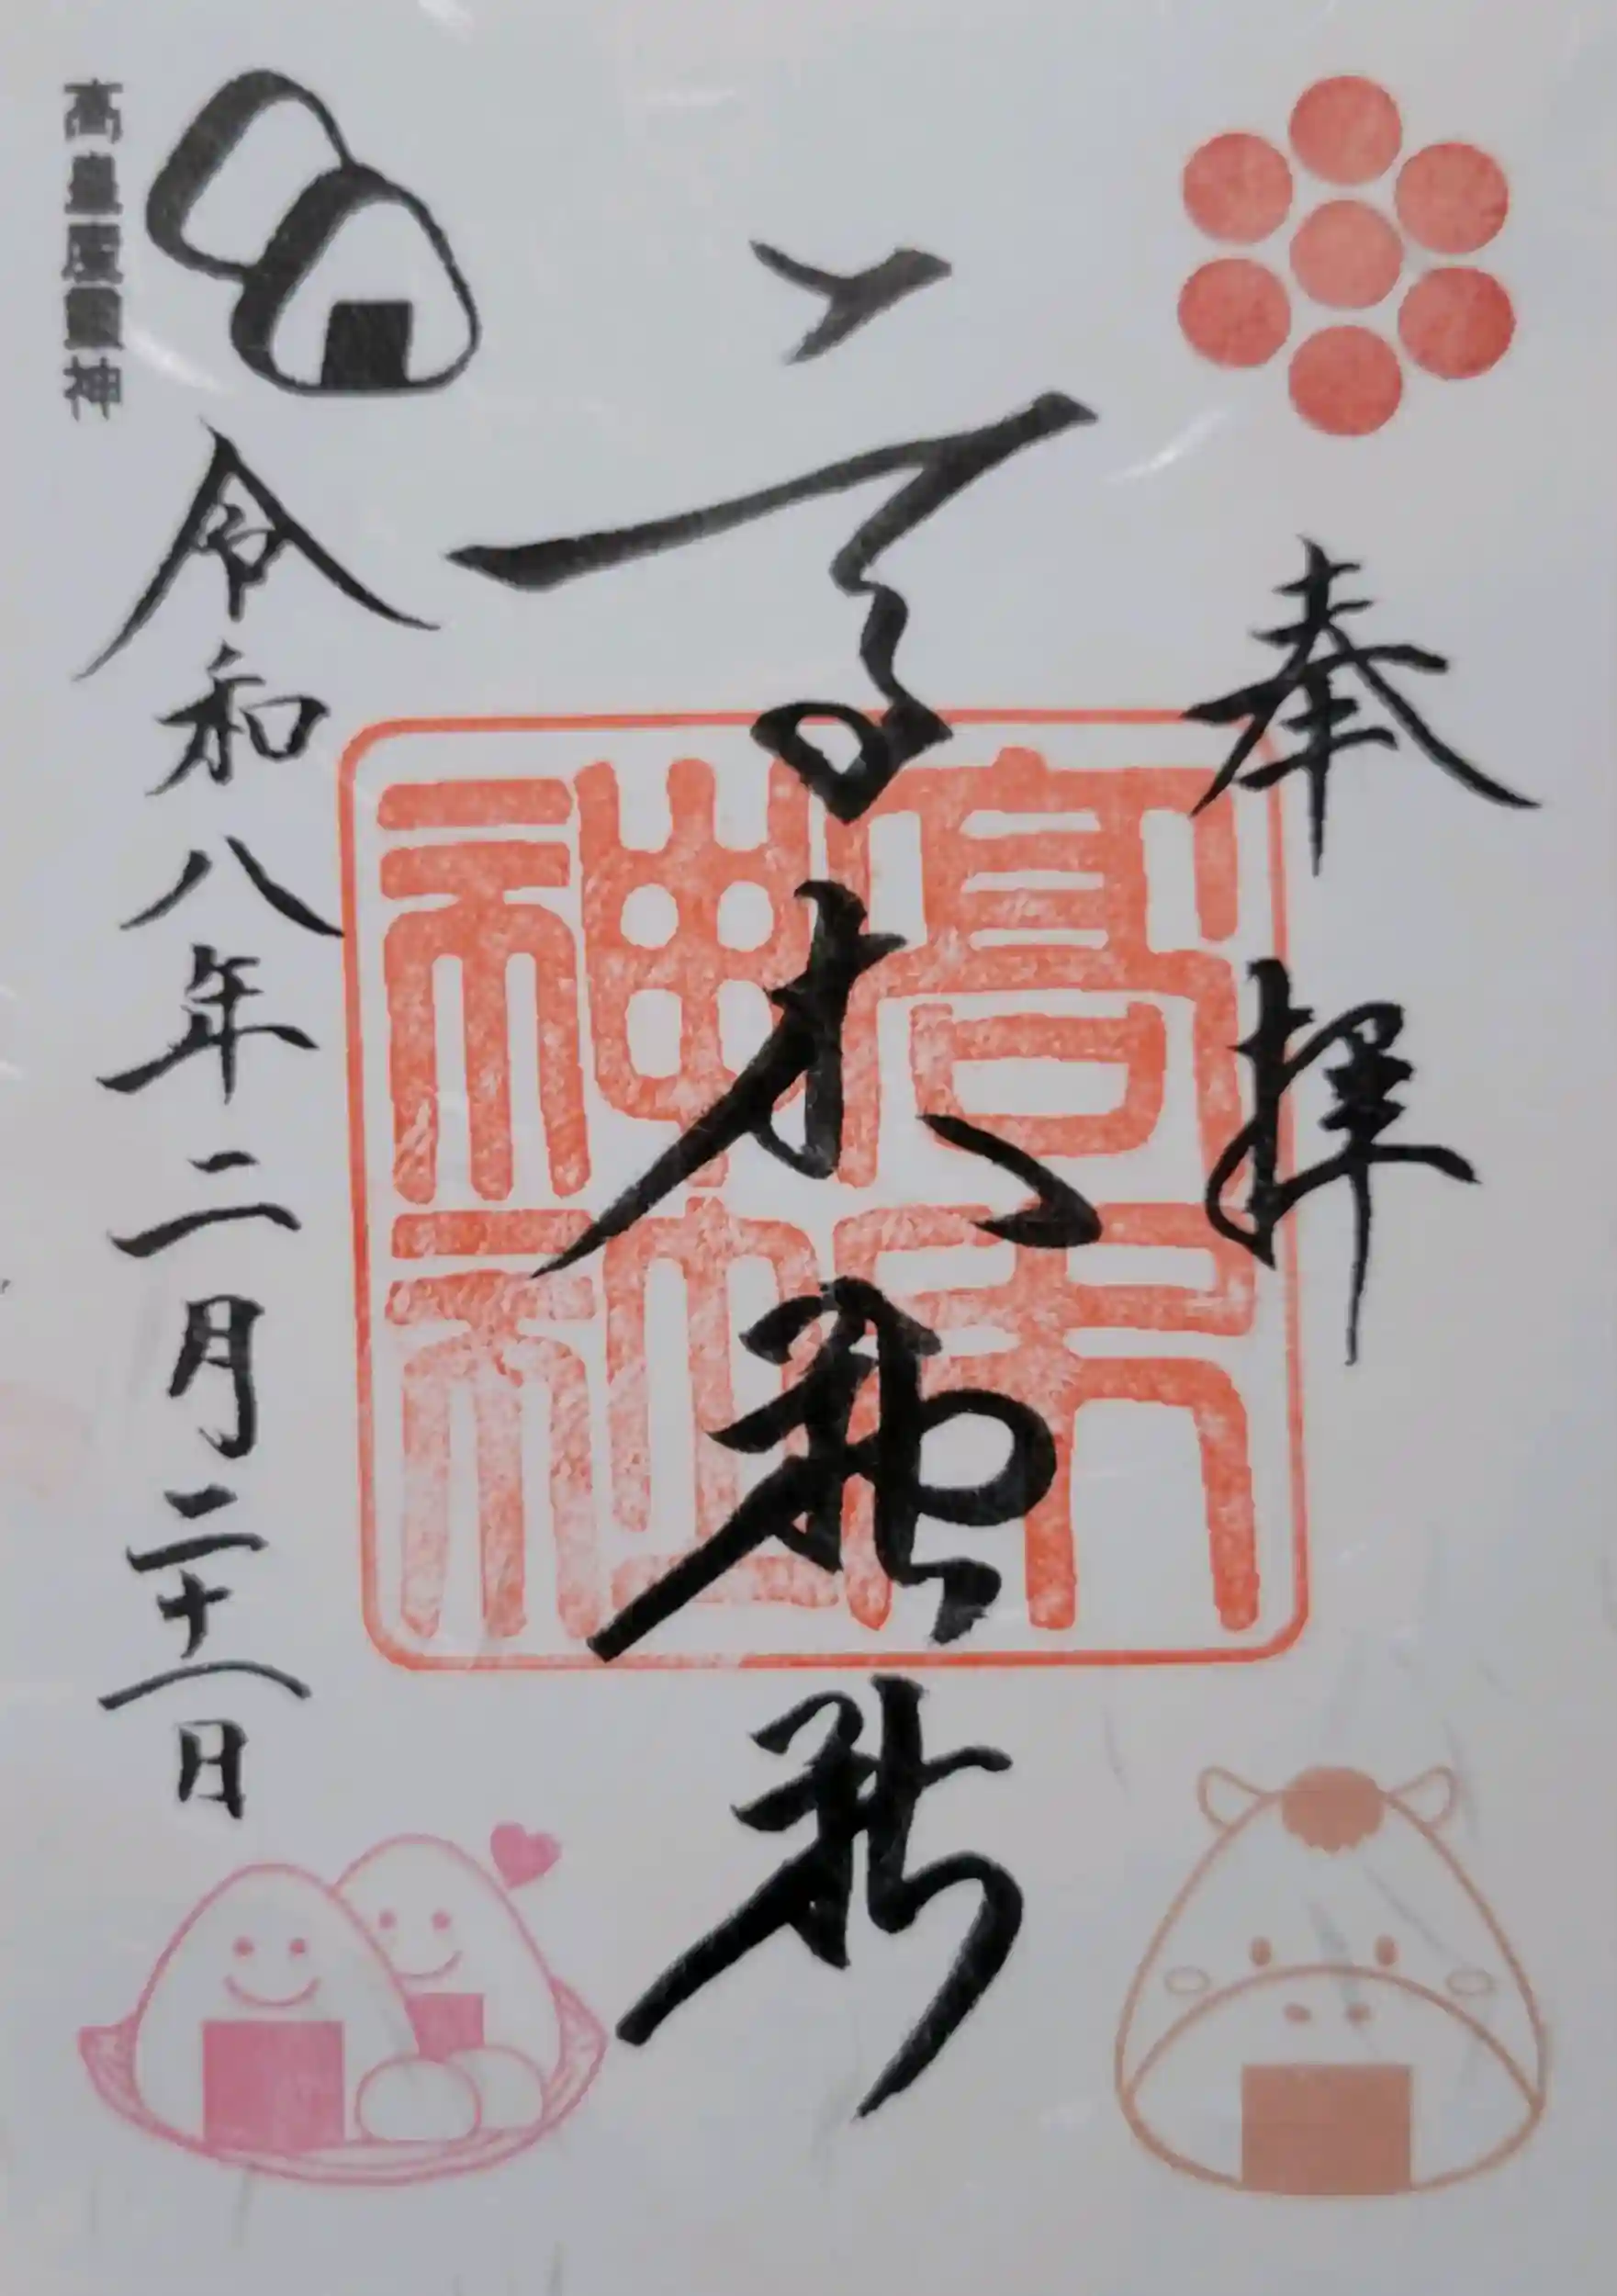 奉拝
高木神社
高木
神社
高皇産霊神
令和八年二月二十一日